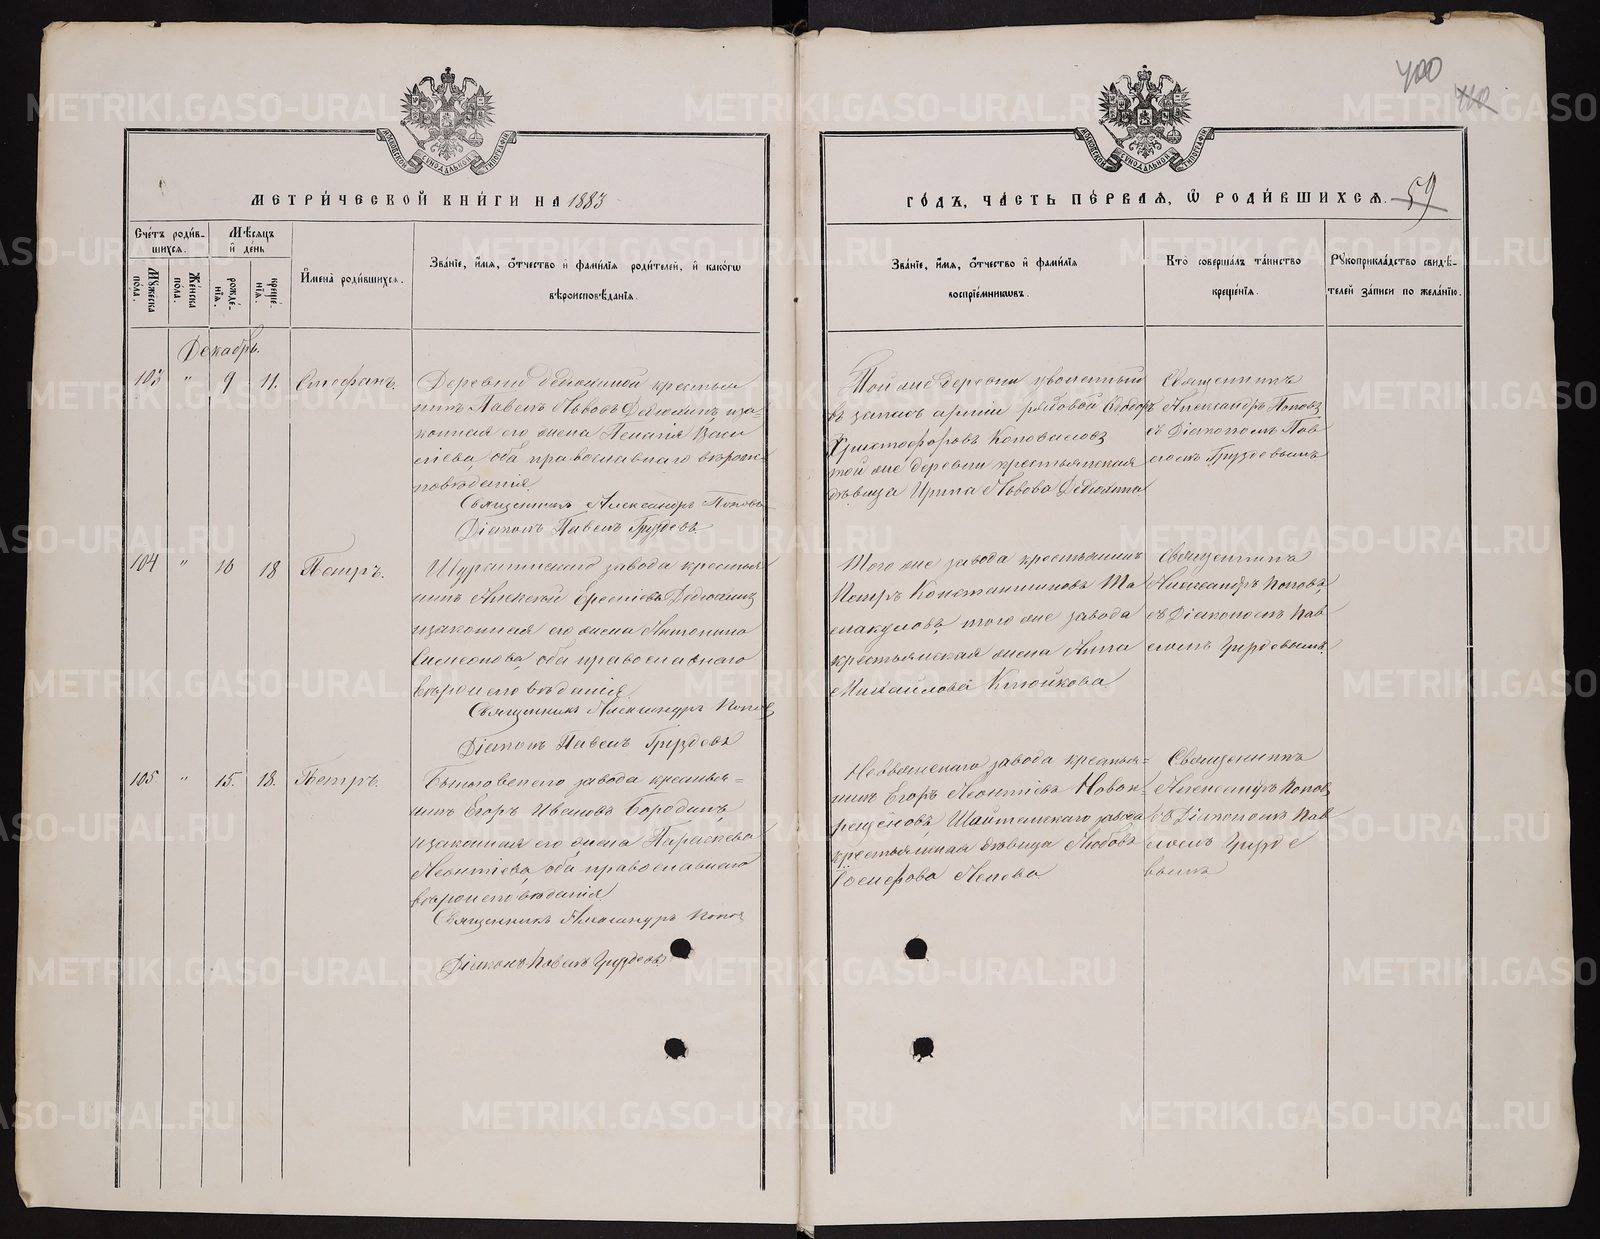 400
110
МЕТРИ́ЧЕСКОЙ КНИ́ГИ НА 1883
ГО́ДЪ, ЧА́СТЬ ПЕ́РВАЯ, Ѡ РОДИ́ВШИХСЯ. 59
Сче́тъ роди́в-
шихся.
Мѣ́сяцъ
и де́нь
Мꙋжеска по́ла.
Же́нска по́ла.
рожде́-
нїя.
креще́-
нїя.
И҆мена̀ роди́вшихся.
Зва́нїе, и҆́мя, ѻ҆́тчество и҆ фами́лїя роди́телей, и҆ како́гѡ
вѣроисповѣ́данїя.
Зва́нїе, и҆́мя, ѻ҆́тчество и҆ фами́лїя
воспрїе́мникѡвъ.
Кто̀ соверша́лъ та́инство
креще́нїя.
Рꙋкоприкла́дство свидѣ́-
телей за́писи по жела́нїю.
Декабрь.
103 " 9 11. Стефанъ.
Деревни крестья
нинъ Павелъ Львовъ Дедюхинъ иза-
конная его жена Пелагія Васи
лієва, оба православнаго вѣроис-
повѣданія.
Священникъ Александръ Поповъ
Діаконъ Павелъ Груздевъ
Той же деревни уволенный
въ запасъ арміи рядовой Ѳедоръ
Христофоровъ Коновалов
той же деревни крестьянская
дѣвица Ирина Львова Дедюхина
Священникъ
Александръ Поповъ
съ Діакономъ Пав
ломъ Груздевымъ
104 " 10 18 Петръ.
Шуралинскаго завода крестья
нинъ Алексѣй Дедюхинъ
изаконная его жена Антонина
Симеонова, оба православнаго
вѣроисповѣданія.
Священникъ Александръ Поповъ
Діаконъ Павелъ Груздевъ
Того же завода крестьянинъ
Петръ Константиновъ Та
лакуловъ, того же завода
крестьянская жена Анна
Михайлова
Священникъ
Александръ Поповъ,
съ Діакономъ Пав
ломъ Груздевымъ.
105. " 15. 18. Петръ.
Быньговскаго завода крестья=
нинъ Егоръ Ивановъ Бородинъ,
изаконная его жена Параскева
Леонтіева, оба православнаго
вѣроисповѣданія
Священникъ Александръ Попов
Діаконъ Павелъ Груздевъ
Невьянскаго завода крестья=
нинъ Егоръ Леонтіевъ Новок
рещёновъ, Шайтанскаго завода
крестьянская дѣвица Любовь
Іосифова
Священникъ
Александръ Попов
съ Діакономъ Пав
ломъ Грузде
вымъ